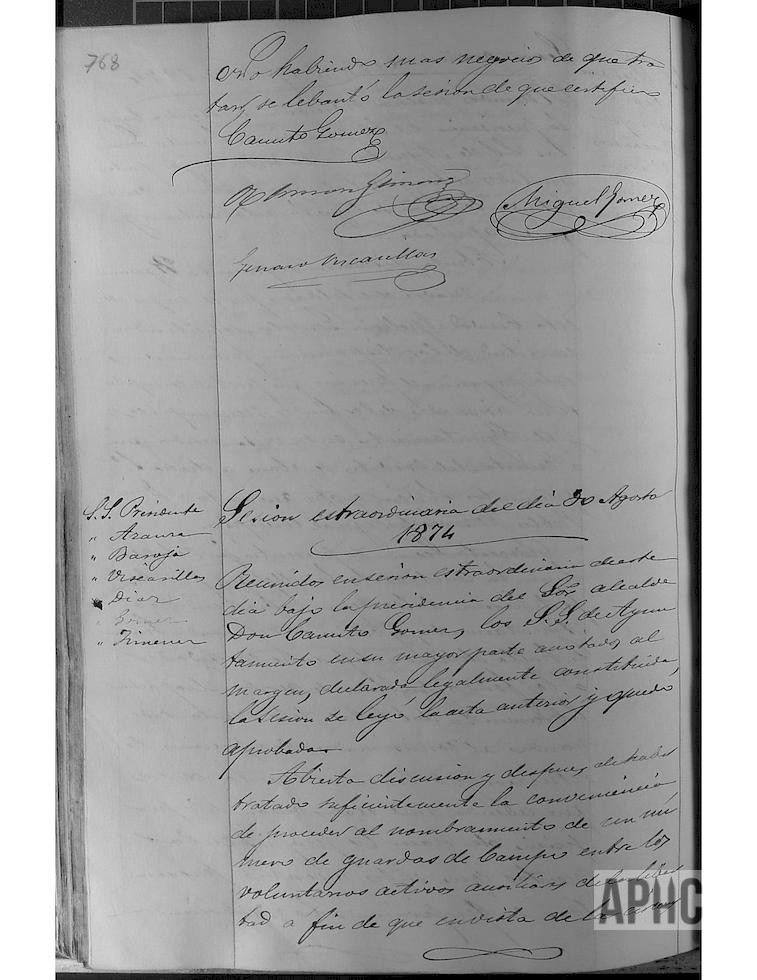 768
No habiendo mas negocios de que tra
tar, se lebantó la sesion de que certifico
Canuto Gomez
Ramon Gimenez
Miguel Gomez
Genaro Viscasillas
Sesion estraordinaria del dia 30 Agosto
1874
S.S. Presidente
" Azaura
" Baraja
" Viscasillas
" Diaz
" Gomez
" Ximenez
Reunidos en sesion estraordinaria de este
dia bajo la presidencia del Sor alcalde
Don Canuto Gomez, los S.S. de Ayun
tamiento en su mayor parte anotados al
margen, declarada legalmente constituida,
la sesion se leyó la acta anterior y quedó
aprobada.
Abierta discusion y despues de haber
tratado suficientemente la conveniencia
de proceder al nombramiento de un nú
mero de guardas de Campo entre los
voluntarios activos ausiliares de la liber
tad a fin de que en vista de la
APHC